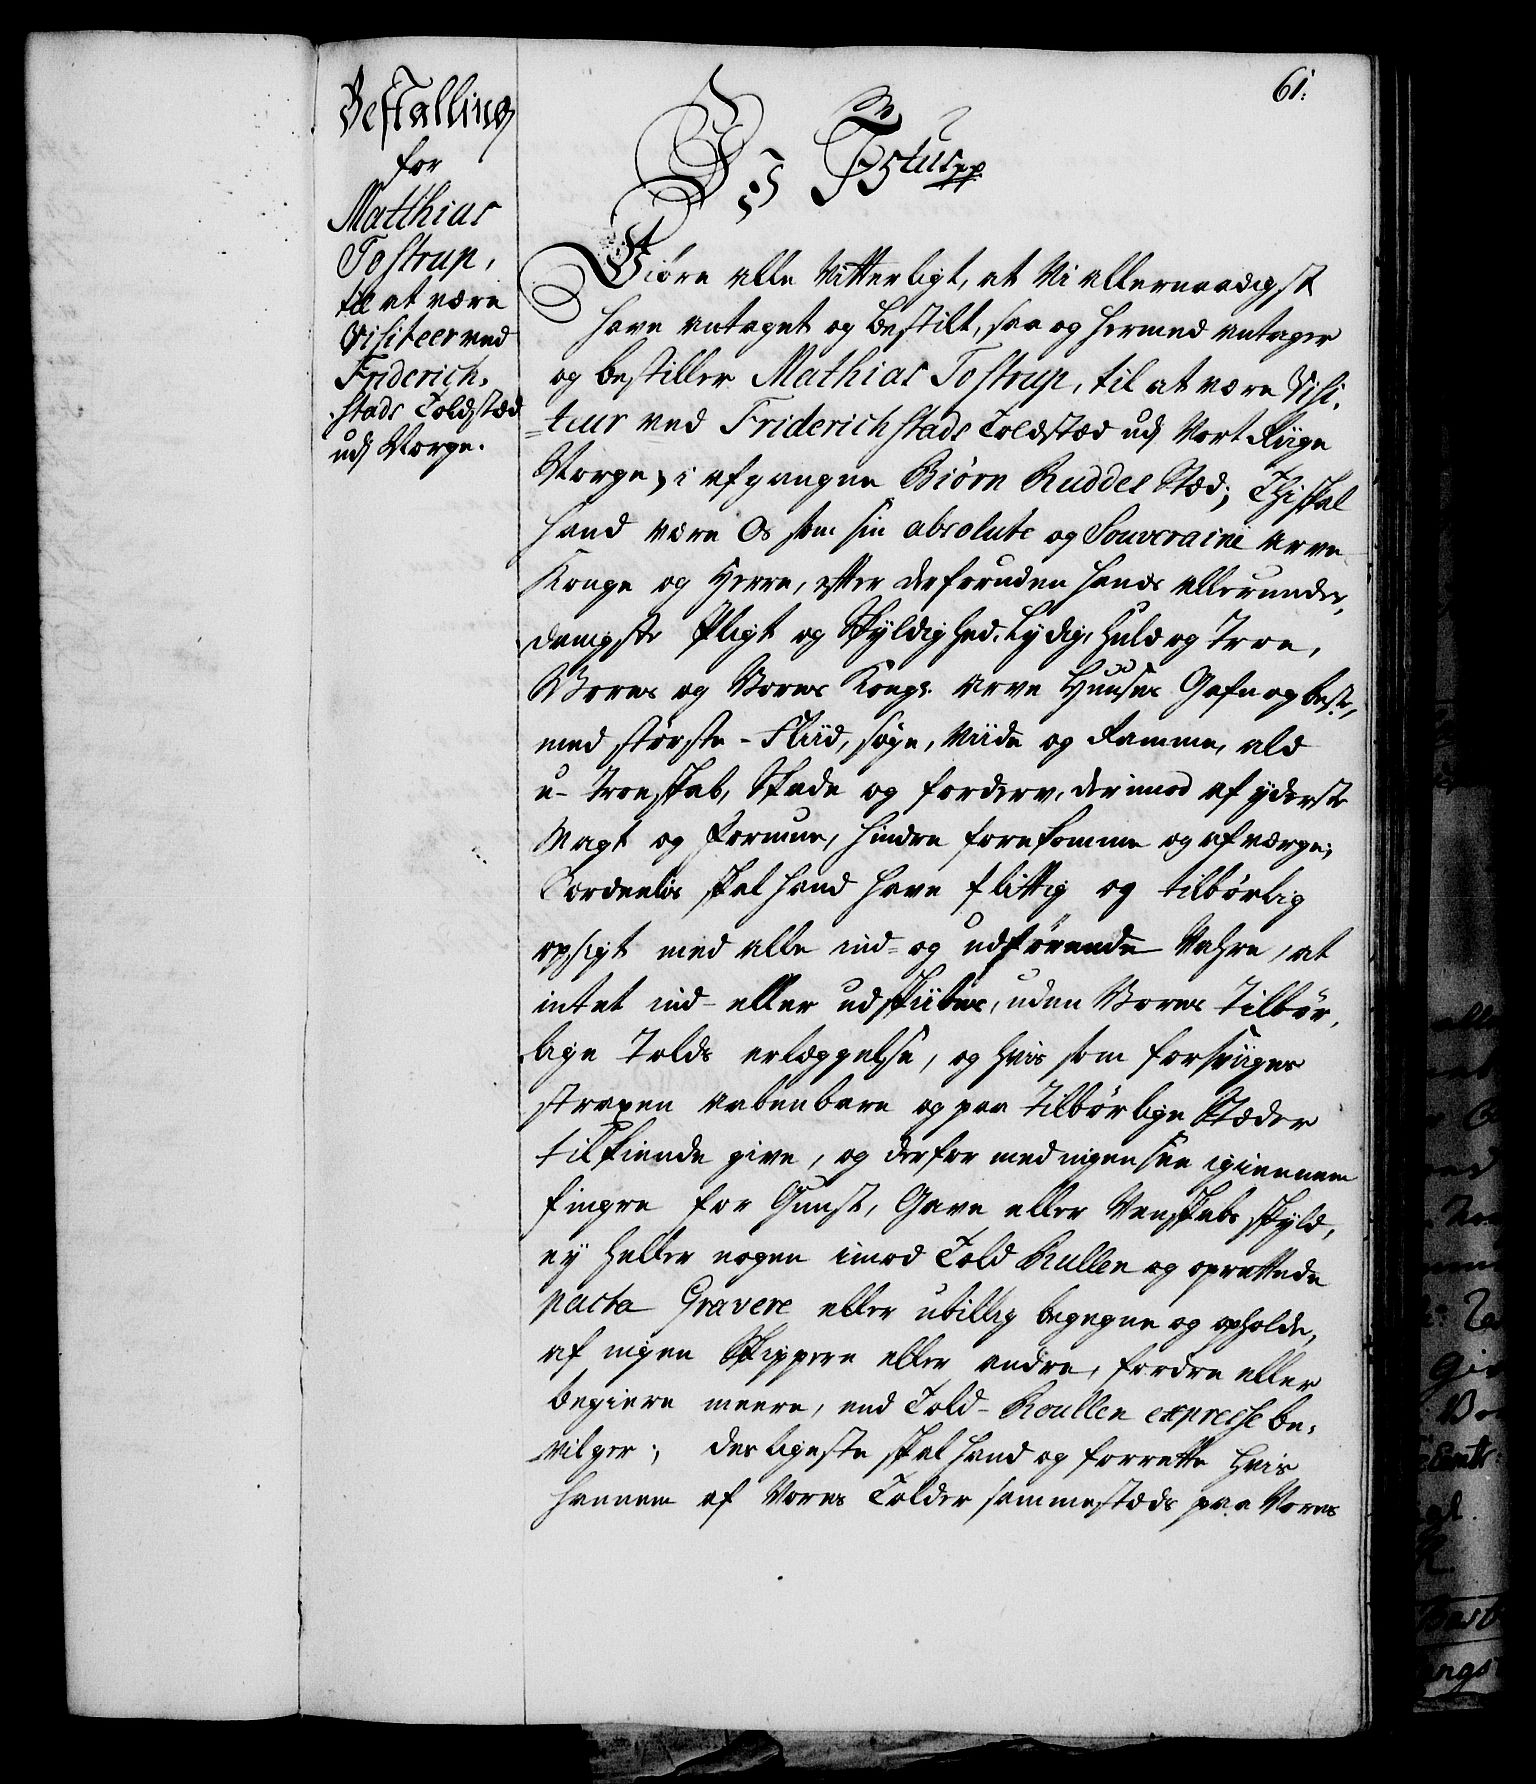 61.
Bestalling
for
Matthias
Tostrup,
til at være
Visiteer ved
Friderich-
stads Toldstæd
udj Norge.
Giøre alle Vitterligt, at Vi allernaadigst
have antaget og bestilt, saa og hermed antager
og bestiller Mathias Tostrup, til at være Visi-
teur ved Friderichstads Toldstæd udj Vort Riige
Norge, i afgangne Biørn Ruddes Stæd; Thi skal
hand være Os som sin absolute og Souveraine Arve
Konge og Herre, efter derforuden hands allerunder-
danigste Pligt og Skyldighed, Lydig, Huld og Troe,
Vores og Vores Kongl. Arve Huuses Gafn og beste,
med største Fliid, søge, Viide og Ramme, ald
u-Troeskab, Skade og forderv, derimod af yderste
Magt og Formue, hindre forekomme og afværge;
Særdeelis skal hand have flittig og tilbørlig
opsigt med alle ind- og udførende Vahre, at
intet ind- eller udskibes, uden Vores Tilbør-
lige Tolds erlæggelse, og hvis som forsviiges
straxen aabenbare og paa tilbørlige Stæder
tilkiende give, og derfor med ingen see igiennem
fingre for Gunst, Gave eller Venskabs skyld,
ey heller nogen imod Told Rullen og oprettede
pacta Gravere eller ubillig begegne og opholde,
af ingen Skippere eller andre, fordre eller
begiere meere, end Told-Roullen expresse be-
vilger; desligeste skal hand og forrette hvis
hannem af Vores Tolder sammestæds paa Vores